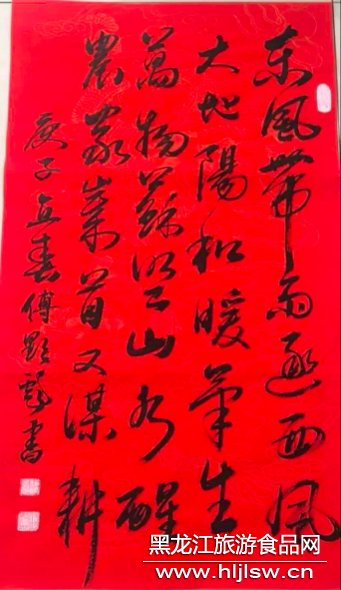 东風帶雨逐西風
大地陽和暖氣生
萬物蘇萌山水醒
農家歲首又謀耕
庚子立春傅書
黑龙江旅游食品网
www.hljlsw.cn